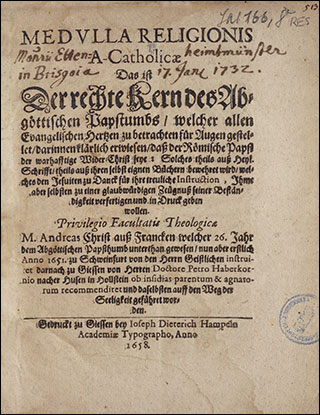 Jal 166, 8° RES
513
MEDVLLA RELIGIONIS
A-Catholicæ
in Brisgoia 17. Janr 1732.
Das ist
Der rechte Kern des Ab-
göttischen Papstumbs / welcher allen
Evangelischen Hertzen zu betrachten für Augen gestel-
let / darinnen klärlich erwiesen / daß der Römische Papst
der warhafftige Wider-Christ seye: Solches theils auß Heyl.
Schrifft / theils auß ihren selbst eignen Büchern bewehret wird / wel-
ches den Jesuiten zu Danck für ihr treuliche Instruction, Ihme
aber selbsten zu einer glaubwürdigen Zeugnuß seiner Bestän-
digkeit verfertigen und in Druck geben
wollen.
Privilegio Facultatis Theologicæ
M. Andreas Christ auß Francken welcher 26. Jahr
dem Abgöttischen Papstthumb unterthan gewesen / nun aber erstlich
Anno 1651. zu Schweinfurt von den Herrn Geistlichen instrui-
ret darnach zu Giessen von Herren Doctore Petro Haberkor-
nio nacher Husen in Hollstein ob insidias parentum & agnato-
rum recommenditet und daselbsten auff den Weg der
Seeligkeit geführet wor-
den.
Gedruckt zu Giessen bey Ioseph Dieterich Hampeln
Academiæ Typographo, Anno
1658.